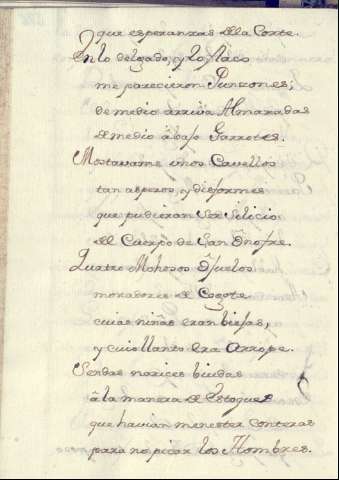 que esperanzas de la Corte.
En lo delgado, y lo flaco
me parecieron Punzones;
de medio arriva Almaradas
de medio abajo Garrotes.
Mostavame unos Cavellos
tan asperos, y disformes
que pudieran ser Silicio
del Cuerpo de San Onofre.
Quatro Mohosos Ojuelos
moradores de Cogote
cuias niñas eran biejas,
y cuio llanto era Arrope.
Sendas narices biudas
à la manera de Estoques
que havian menester conteras
para no picar los Hombres.